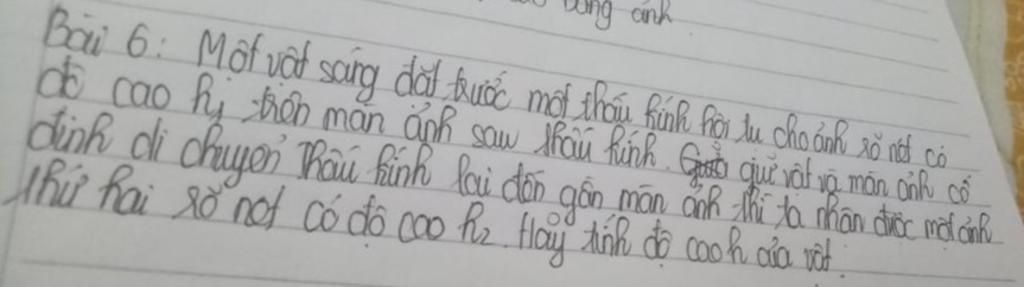 bóng ảnh
Bài 6: Một vật sáng đặt trước một thấu kính hội tụ cho ảnh rõ nét có
độ cao h₁ trên màn ảnh sau thấu kính. giữ vật và màn ảnh cố
định di chuyển thấu kính lại đến gần màn ảnh thì ta nhận được một ảnh
thứ hai rõ nét có độ cao h₂. Hãy tính độ cao h của vật.